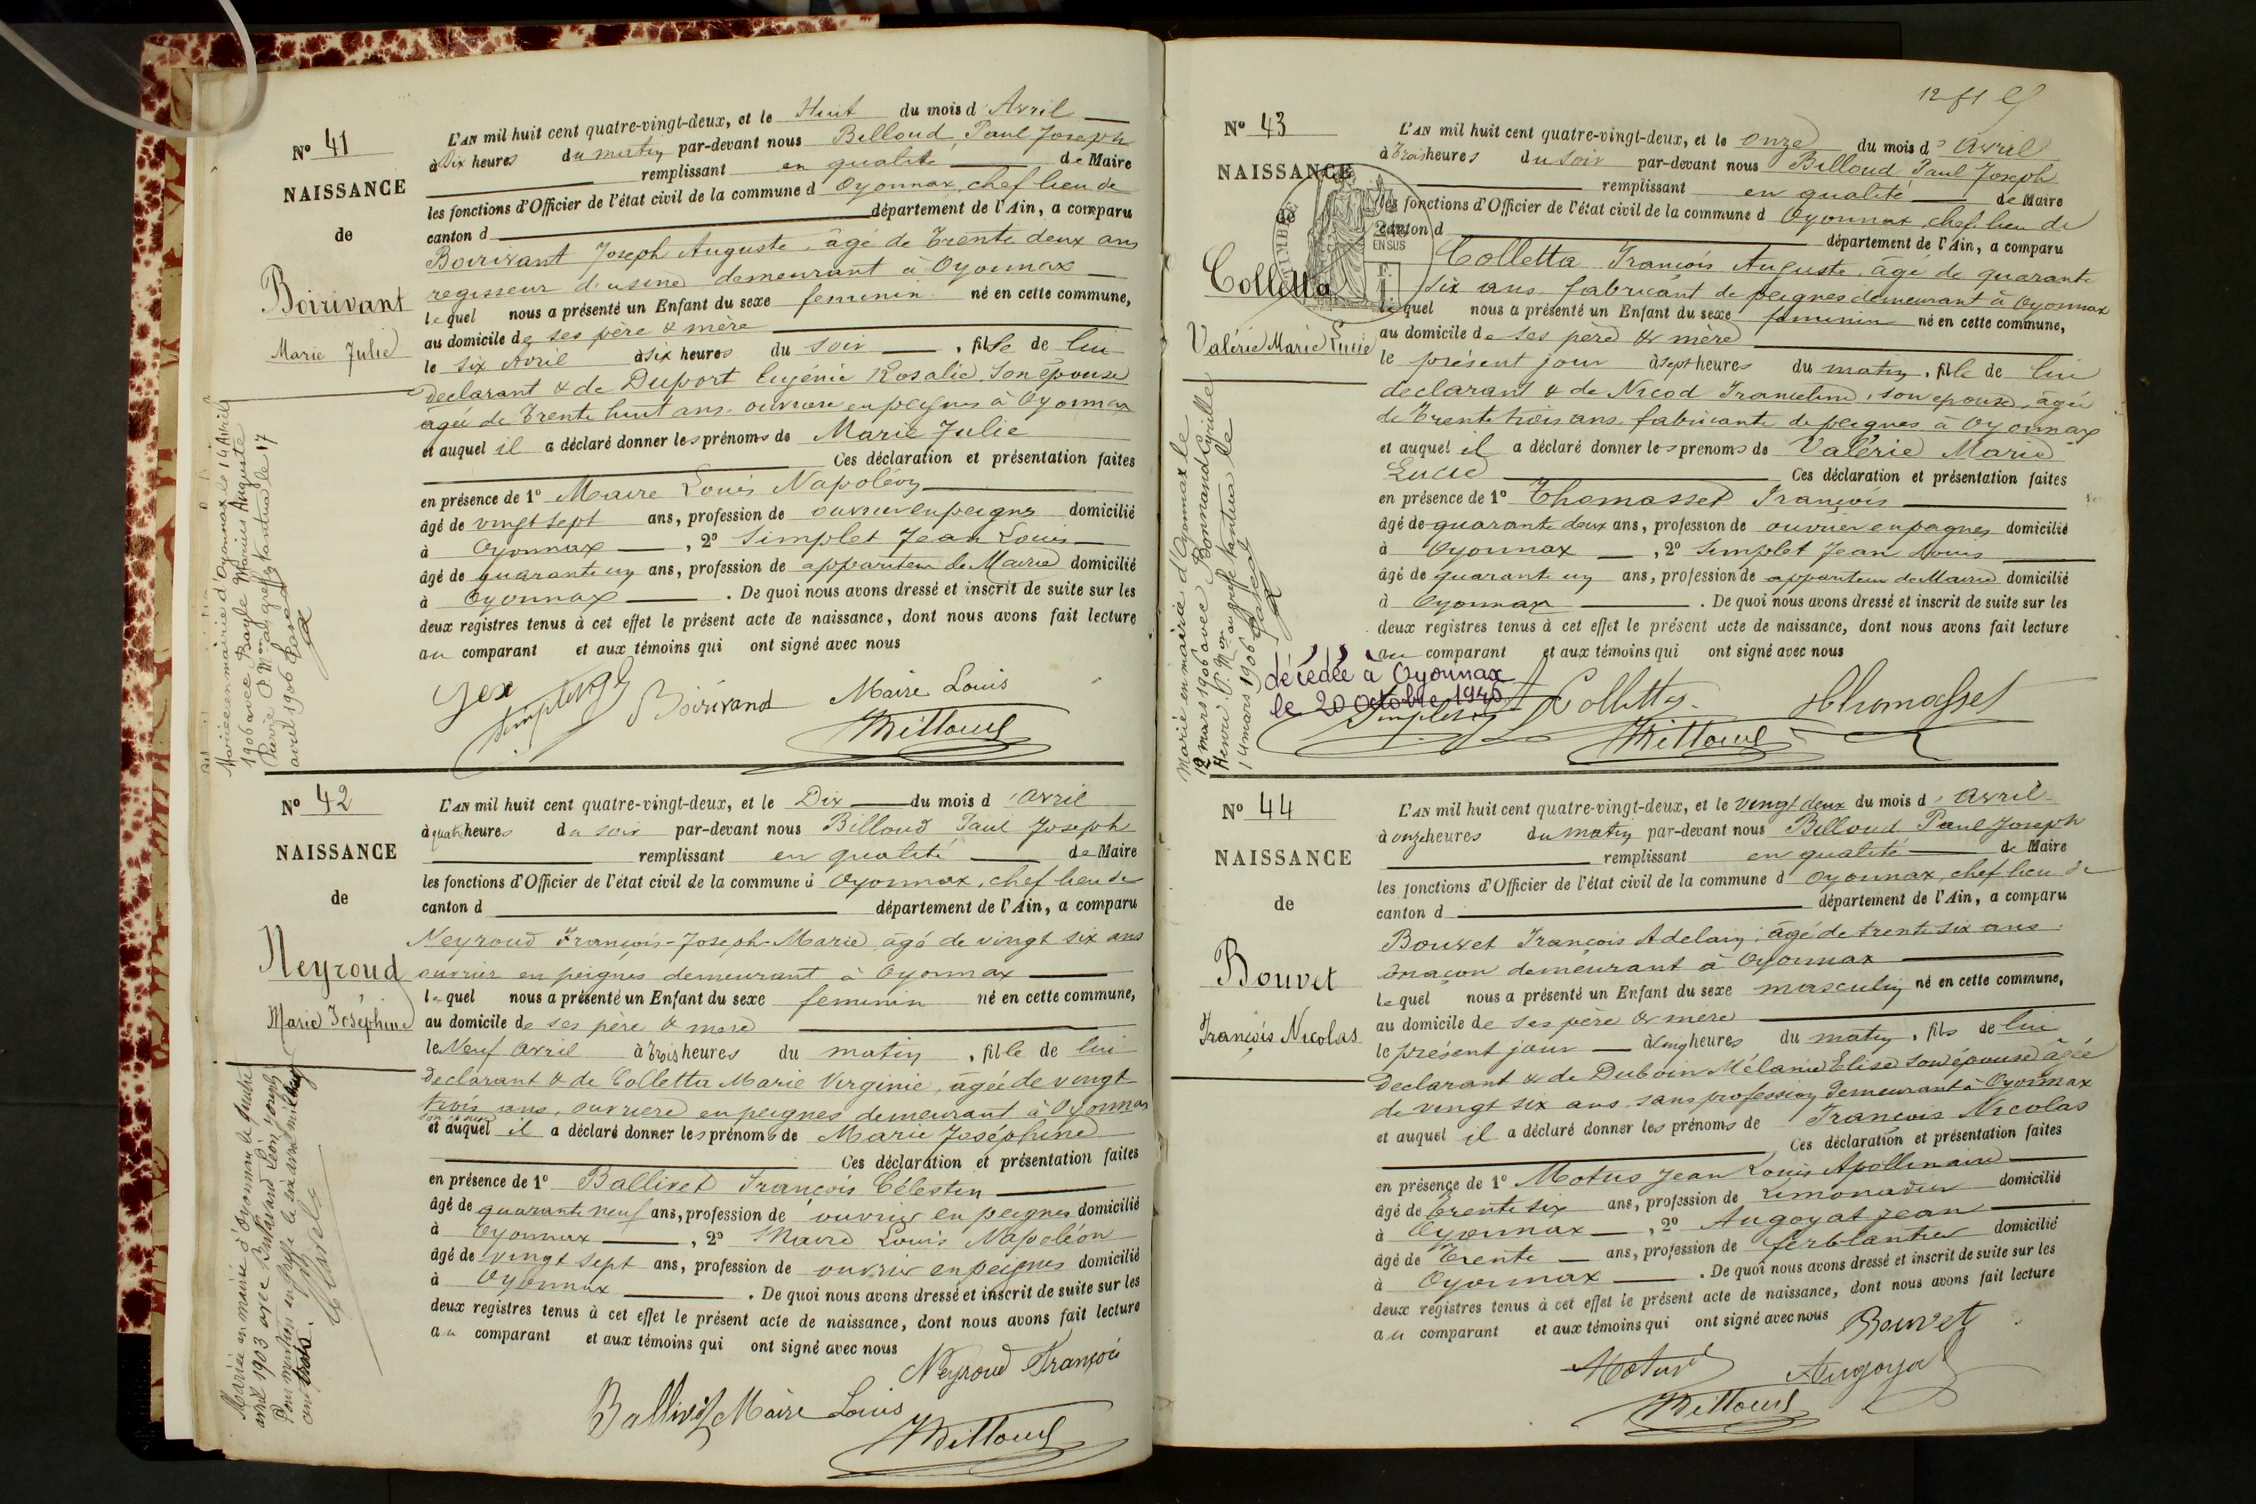 N° 41
NAISSANCE
de
Boirivant
Marie Julie
L'AN mil huit cent quatre-vingt-deux, et le Huit du mois d'Avril
à Dix heures du matin par-devant nous Billoud, Paul Joseph
remplissant en qualité de Maire
les fonctions d'Officier de l'état civil de la commune d Oyonnax, chef lieu de
canton d département de l'Ain, a comparu
Boirivant Joseph Auguste, âgé de Trente deux ans
regisseur d'usine demeurant à Oyonnax
lequel nous a présenté un Enfant du sexe feminin né en cette commune,
au domicile de ses père & mère
le six Avril à six heures du soir, fille de lui
declarant & de Duport Eugénie Rosalie, son épouse
agée de Trente huit ans, ouvriere en peignes à Oyonnax
et auquel il a déclaré donner les prénoms de Marie Julie
Ces déclaration et présentation faites
en présence de 1° Maire Louis Napoléon
âgé de vingt sept ans, profession de ouvrier en peignes domicilié
à Oyonnax, 2° Simplet Jean Louis
âgé de quarante un ans, profession de appariteur de Mairie domicilié
à Oyonnax. De quoi nous avons dressé et inscrit de suite sur les
deux registres tenus à cet effet le présent acte de naissance, dont nous avons fait lecture
au comparant et aux témoins qui ont signé avec nous
Boirivand Maire Louis
Billoud
Mariée en mairie d'Oyonnax le 14 Avril
1906 avec Bayle Marius Auguste
Pierre P. Mon au greffe Nantua le 17
avril 1906
N° 42
NAISSANCE
de
Neyroud
Marie Joséphine
L'AN mil huit cent quatre-vingt-deux, et le Dix du mois d'avril
à quatre heures du soir par-devant nous Billoud Paul Joseph
remplissant en qualité de Maire
les fonctions d'Officier de l'état civil de la commune d Oyonnax, chef lieu de
canton d département de l'Ain, a comparu
Neyroud François-Joseph-Marie âgé de vingt six ans
ouvrier en peignes demeurant à Oyonnax
lequel nous a présenté un Enfant du sexe feminin né en cette commune,
au domicile de ses père & mère
le Neuf avril à trois heures du matin, fille de lui
declarant & de Colletta Marie Virginie, agée de vingt
trois ans, ouvriere en peignes demeurant à Oyonnax
son épouse
et auquel il a déclaré donner les prénoms de Marie Joséphine
Ces déclaration et présentation faites
en présence de 1° Ballivet François Célestin
âgé de quarante neuf ans, profession de ouvrier en peignes domicilié
à Oyonnax, 2° Maire Louis Napoléon
âgé de vingt sept ans, profession de ouvrier en peignes domicilié
à Oyonnax. De quoi nous avons dressé et inscrit de suite sur les
deux registres tenus à cet effet le présent acte de naissance, dont nous avons fait lecture
au comparant et aux témoins qui ont signé avec nous
Neyroud François
Ballivet Maire Louis
Billoud
Mariée en mairie d'Oyonnax le quatre
avril 1903 avec Léon Joseph
Pour mention le six avril mil neuf
cent trois.
12 f
N° 43
NAISSANCE
de
Colletta
Valérie Marie Lucie
L'AN mil huit cent quatre-vingt-deux, et le onze du mois d'avril
à trois heures du soir par-devant nous Billoud Paul Joseph
remplissant en qualité de Maire
les fonctions d'Officier de l'état civil de la commune d Oyonnax, chef lieu de
canton d département de l'Ain, a comparu
Colletta François Auguste, âgé de quarante
six ans fabricant de peignes demeurant à Oyonnax
lequel nous a présenté un Enfant du sexe feminin né en cette commune,
au domicile de ses père & mère
le présent jour à sept heures du matin, fille de lui
declarant & de Nicod Franceline, son épouse, agée
de Trente trois ans fabricante de peignes à Oyonnax
et auquel il a déclaré donner les prénoms de Valérie Marie
Lucie Ces déclaration et présentation faites
en présence de 1° Thomasset François
âgé de quarante deux ans, profession de ouvrier en peignes domicilié
à Oyonnax, 2° Simplet Jean Louis
âgé de quarante un ans, profession de appariteur de Mairie domicilié
à Oyonnax. De quoi nous avons dressé et inscrit de suite sur les
deux registres tenus à cet effet le présent acte de naissance, dont nous avons fait lecture
au comparant et aux témoins qui ont signé avec nous
décédée à Oyonnax
le 20 Octobre 1940
Colletta Thomasset
Billoud
Mariée en mairie d'Oyonnax le
12 mars 1906 avec Bonnand Cyrille
Henri P. Mon au greffe Nantua le
14 mars 1906
N° 44
NAISSANCE
de
Bouvet
François Nicolas
L'AN mil huit cent quatre-vingt-deux, et le vingt deux du mois d'avril
à onze heures du matin par-devant nous Billoud Paul Joseph
remplissant en qualité de Maire
les fonctions d'Officier de l'état civil de la commune d'Oyonnax, chef lieu de
canton d département de l'Ain, a comparu
Bouvet François Adelain, âgé de trente six ans
maçon demeurant à Oyonnax
lequel nous a présenté un Enfant du sexe masculin né en cette commune,
au domicile de ses père & mère
le présent jour à cinq heures du matin, fils de lui
declarant & de Duboin Mélanie Elise son épouse âgée
de vingt six ans sans profession demeurant à Oyonnax
et auquel il a déclaré donner les prénoms de François Nicolas
Ces déclaration et présentation faites
en présence de 1° Motus Jean Louis Apollinaire
âgé de Trente six ans, profession de Limonadier domicilié
à Oyonnax, 2° Augoyat Jean
âgé de Trente ans, profession de ferblantier domicilié
à Oyonnax. De quoi nous avons dressé et inscrit de suite sur les
deux registres tenus à cet effet le présent acte de naissance, dont nous avons fait lecture
au comparant et aux témoins qui ont signé avec nous Bouvet
Motus Augoyat
Billoud